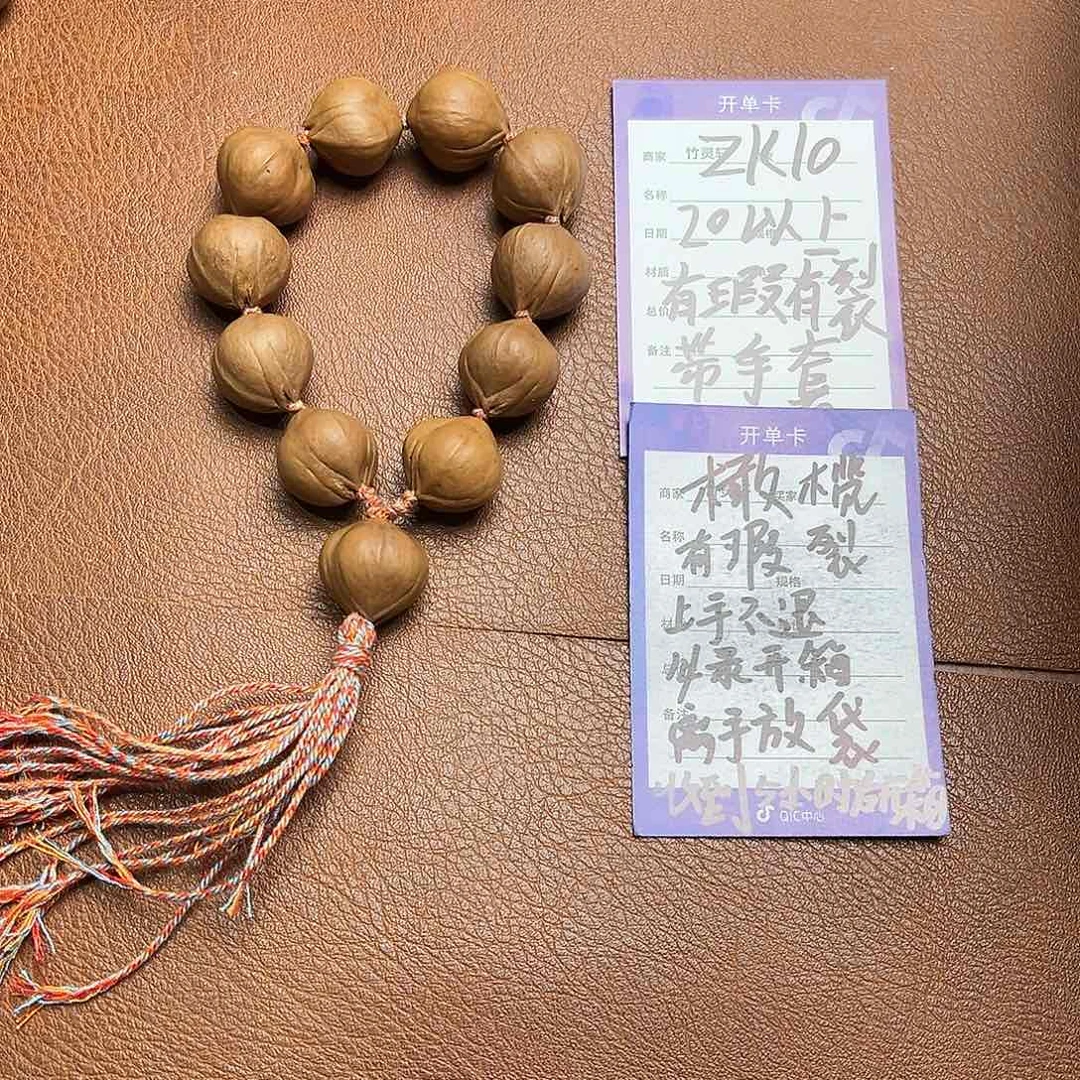 开单卡
商家 竹灵轩 ZK10
名称
日期 20以上
材质 有瑕有裂
总价
备注 带手套
开单卡
商家 橄榄 买家
名称 有瑕裂
日期 规格
上手不退
必录开箱
备注 离手放袋
收到24小时内开箱
QIC中心